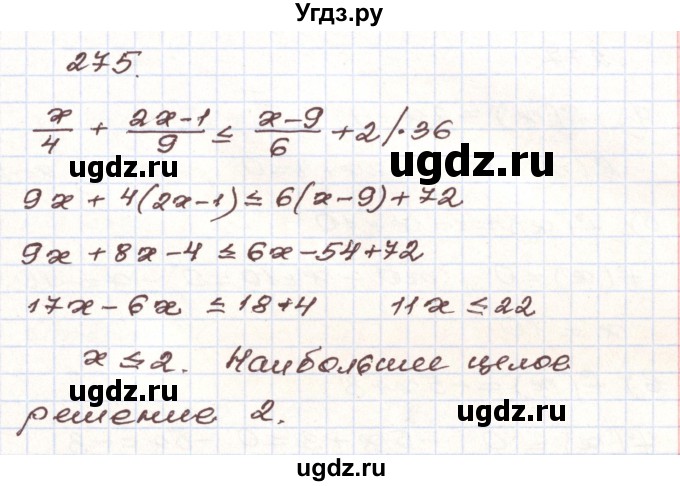 Угдз.ру
275.
x/4 + (2x-1)/9 ≤ (x-9)/6 + 2 /·36
ugdz.ru ugdz.ru
9x + 4(2x-1) ≤ 6(x-9) + 72
9x + 8x - 4 ≤ 6x - 54 + 72
17x - 6x ≤ 18+4 11x ≤ 22
x ≤ 2. Наибольшее целое
ugdz.ru ugdz.ru
решение 2.
ugdz.ru